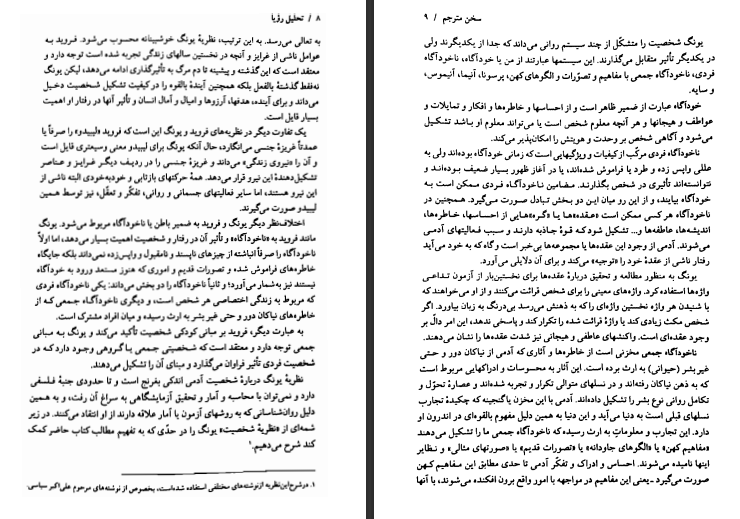 ۸ / تحلیل رؤیا
به تعالی می‌رسد. به این ترتیب، نظریهٔ یونگ خوشبینانه محسوب می‌شود. فروید به
عوامل ناشی از غرایز و آنچه در نخستین سالهای زندگی تجربه شده است توجه دارد و
معتقد است که این گذشته و پیشینه تا دم مرگ به تأثیرگذاری ادامه می‌دهد، لیکن یونگ
نه‌فقط گذشتهٔ بالفعل بلکه همچنین آیندهٔ بالقوه را در کیفیت تشکیل شخصیت دخیل
می‌داند و برای آینده، هدفها، آرزوها و امیال و آمال انسان و تأثیر آنها در رفتار او اهمیت
بسیار قایل است.
یک تفاوت دیگر در نظریه‌های فروید و یونگ این است که فروید «لیبیدو» را صرفاً یا
عمدتاً غریزهٔ جنسی می‌انگارد، حال آنکه یونگ برای لیبیدو معنی وسیعتری قایل است
و آن را «نیروی زندگی» می‌داند و غریزهٔ جنسی را در ردیف دیگر غرایز و عناصر
تشکیل‌دهندهٔ این نیرو قرار می‌دهد. همهٔ حرکتهای بازتابی و خودبه‌خودی البته ناشی از
این نیرو هستند، اما سایر فعالیتهای جسمانی و روانی، تفکّر و تعقّل، نیز توسط همین
لیبیدو صورت می‌گیرند.
اختلاف‌نظر دیگر یونگ و فروید به ضمیر باطن یا ناخودآگاه مربوط می‌شود. یونگ
مانند فروید به «ناخودآگاه» و تأثیر آن در رفتار و شخصیت اهمیت بسیار می‌دهد، اما اولاً
ناخودآگاه را صرفاً انباشته از چیزهای ناپسند و نامقبول و واپس‌زده نمی‌داند بلکه جایگاه
خاطره‌های فراموش شده و تصورات قدیم و اموری که هنوز مستعد ورود به خودآگاه
نیستند نیز به‌شمار می‌آورد؛ و ثانیاً ناخودآگاه را دو بخش می‌داند: یکی ناخودآگاه فردی
که مربوط به زندگی اختصاصی هر شخص است، و دیگری ناخودآگاه جمعی که از
خاطره‌های نیاکان دور و حتی غیر بشر به ارث رسیده و میان افراد مشترک است.
به عبارت دیگر، فروید بر مبانی کودکی شخصیت تأکید می‌کند و یونگ به مبانی
جمعی توجه دارد و معتقد است که شخصیتی جمعی یا گروهی وجود دارد که در
شخصیت فردی تأثیر فراوان می‌گذارد و مبنای آن را تشکیل می‌دهند.
نظریهٔ یونگ دربارهٔ شخصیت آدمی اندکی بغرنج است و تا حدودی جنبهٔ فلسفی
دارد و نمی‌توان با محاسبه و آمار و تحقیق آزمایشگاهی به سراغ آن رفت؛ و به همین
دلیل روان‌شناسانی که به روشهای آزمون یا آمار علاقه دارند از او انتقاد می‌کنند. در زیر
شمه‌ای از «نظریهٔ شخصیت» یونگ را در حدّی که به تفهیم مطالب کتاب حاضر کمک
کند شرح می‌دهیم.۱
۱. در شرح این نظریه از نوشته‌های مختلفی استفاده شده است، بخصوص از نوشته‌های مرحوم علی‌اکبر سیاسی.
سخن مترجم / ۹
یونگ شخصیت را متشکّل از چند سیستم روانی می‌داند که جدا از یکدیگرند ولی
در یکدیگر تأثیر متقابل می‌گذارند. این سیستمها عبارتند از من یا خودآگاه، ناخودآگاه
فردی، ناخودآگاه جمعی با مفاهیم و تصوّرات و الگوهای کهن، پرسونا، آنیما، آنیموس،
و سایه.
خودآگاه عبارت از ضمیر ظاهر است و از احساسها و خاطره‌ها و افکار و تمایلات و
عواطف و هیجانها و هر آنچه معلوم شخص است یا می‌تواند معلوم او باشد تشکیل
می‌شود و آگاهی شخص بر وحدت و هویتش را امکان‌پذیر می‌کند.
ناخودآگاه فردی مرکّب از کیفیات و ویژگیهایی است که زمانی خودآگاه بوده‌اند ولی به
عللی واپس زده و طرد یا فراموش شده‌اند، یا در آغاز ظهور بسیار ضعیف بوده‌اند و
نتوانسته‌اند تأثیری در شخص بگذارند. مضامین ناخودآگاه فردی ممکن است به
خودآگاه بیایند، و از این رو میان این دو بخش تبادل صورت می‌گیرد. همچنین در
ناخودآگاه هر کسی ممکن است «عقده‌ها یا گره‌هایی از احساسها، خاطره‌ها،
اندیشه‌ها، عاطفه‌ها و... تشکیل شود که قوهٔ جاذبه دارند و سبب فعالیتهای آدمی
می‌شوند. آدمی از وجود این عقده‌ها یا مجموعه‌ها بی‌خبر است و گاه که به خود می‌آید
رفتار ناشی از عقدهٔ خود را «توجیه» می‌کند و برای آن دلایلی می‌آورد.
یونگ به منظور مطالعه و تحقیق دربارهٔ عقده‌ها برای نخستین‌بار از آزمون تداعی
واژه‌ها استفاده کرد. واژه‌های معینی را برای شخص قرائت می‌کنند و از او می‌خواهند که
با شنیدن هر واژه نخستین واژه‌ای را که به ذهنش می‌رسد بی‌درنگ به زبان بیاورد. اگر
شخص مکث زیادی کند یا واژهٔ قرائت شده را تکرار کند و پاسخی ندهد، این امر دالّ بر
وجود عقده‌ای است. واکنشهای عاطفی و هیجانی نیز شدت عقده‌ها را نشان می‌دهند.
ناخودآگاه جمعی مخزنی است از خاطره‌ها و آثاری که آدمی از نیاکان دور و حتی
غیر بشر (حیوانی) به ارث برده است. این آثار به محسوسات و ادراکهایی مربوط است
که به ذهن نیاکان رفته‌اند و در نسلهای متوالی تکرار و تجربه شده‌اند و عصارهٔ تحوّل و
تکامل روانی نوع بشر را تشکیل داده‌اند. آدمی با این مخزن یا گنجینه که چکیدهٔ تجارب
نسلهای قبلی است به دنیا می‌آید و این دنیا به همین دلیل مفهوم بالقوه‌ای در اندرون او
دارد. این تجارب و معلومات به ارث رسیده که ناخودآگاه جمعی ما را تشکیل می‌دهند
«مفاهیم کهن» یا «الگوهای جاودانه» یا «تصورات قدیم» یا «صورتهای مثالی» و نظایر
اینها نامیده می‌شوند. احساس و ادراک و تفکّر آدمی تا حدی مطابق این مفاهیم کهن
صورت می‌گیرد ـ یعنی این مفاهیم در مواجهه با امور واقع برون افکنده می‌شوند، با آنها